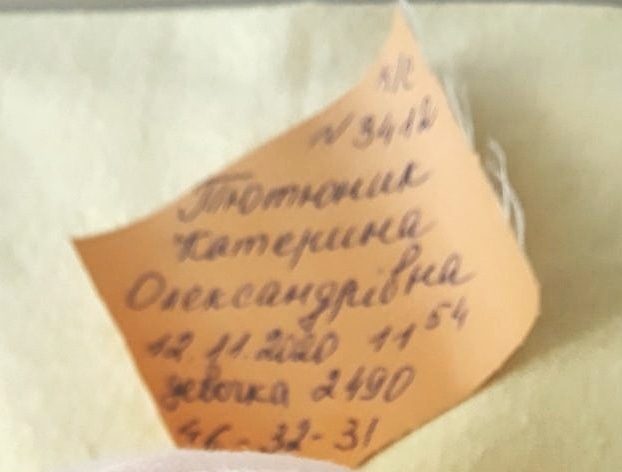 N 3412
Тютюник
Катерина
Олександрівна
12.11.2020 11 54
девочка 2490
46-32-31